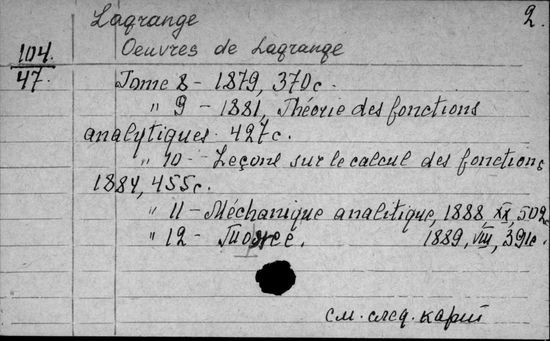 Lagrange 2.
Oeuvres de Lagrange
104
47. Tome 8 - 1879, 370c.
" 9 - 1881, Théorie des fonctions
analytiques. 427c.
" 10 - Leçons sur le calcul des fonctions
1884, 455c.
" 11 - Méchanique analitique, 1888 XX, 502c
" 12 - 1889, VIII, 391c.
см. след. карт